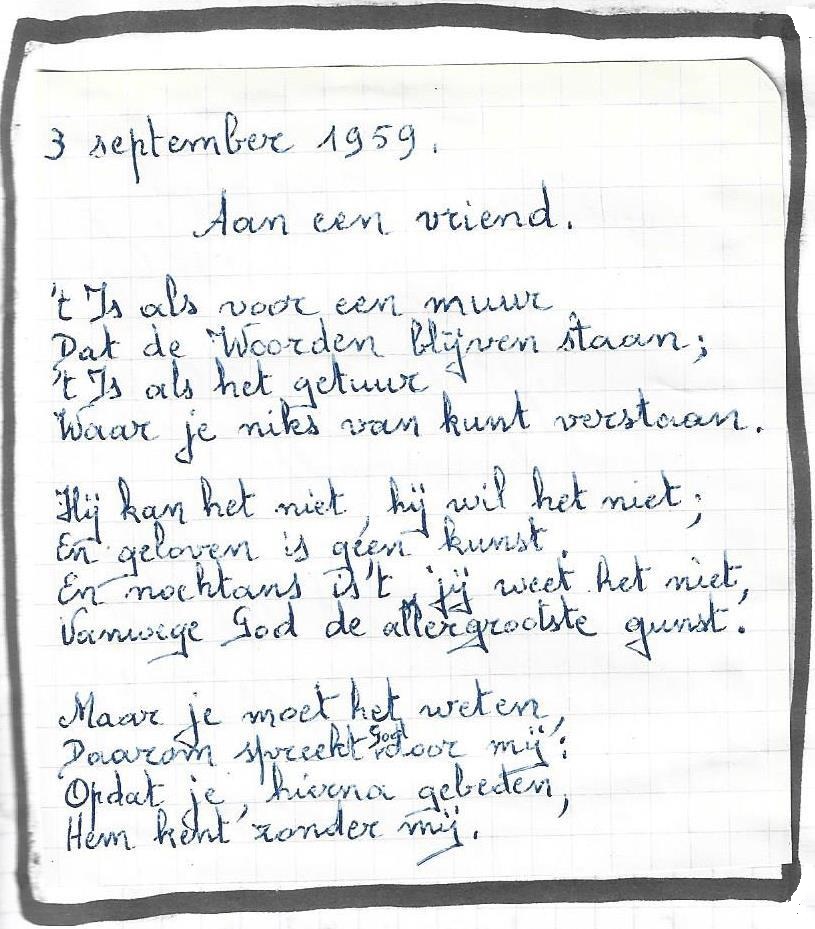 3 september 1959.
Aan een vriend.
't Is als voor een muur
Dat de Woorden blijven staan;
't Is als het getuur
Waar je niks van kunt verstaan.
Hij kan het niet, hij wil het niet;
En geloven is geen kunst.
En nochtans is't, jij weet het niet,
Vanwege God de allergrootste gunst.
Maar je moet het weten,
Daarom spreekt God door mij:
Opdat je, hierna gebeden,
Hem kent zonder mij.